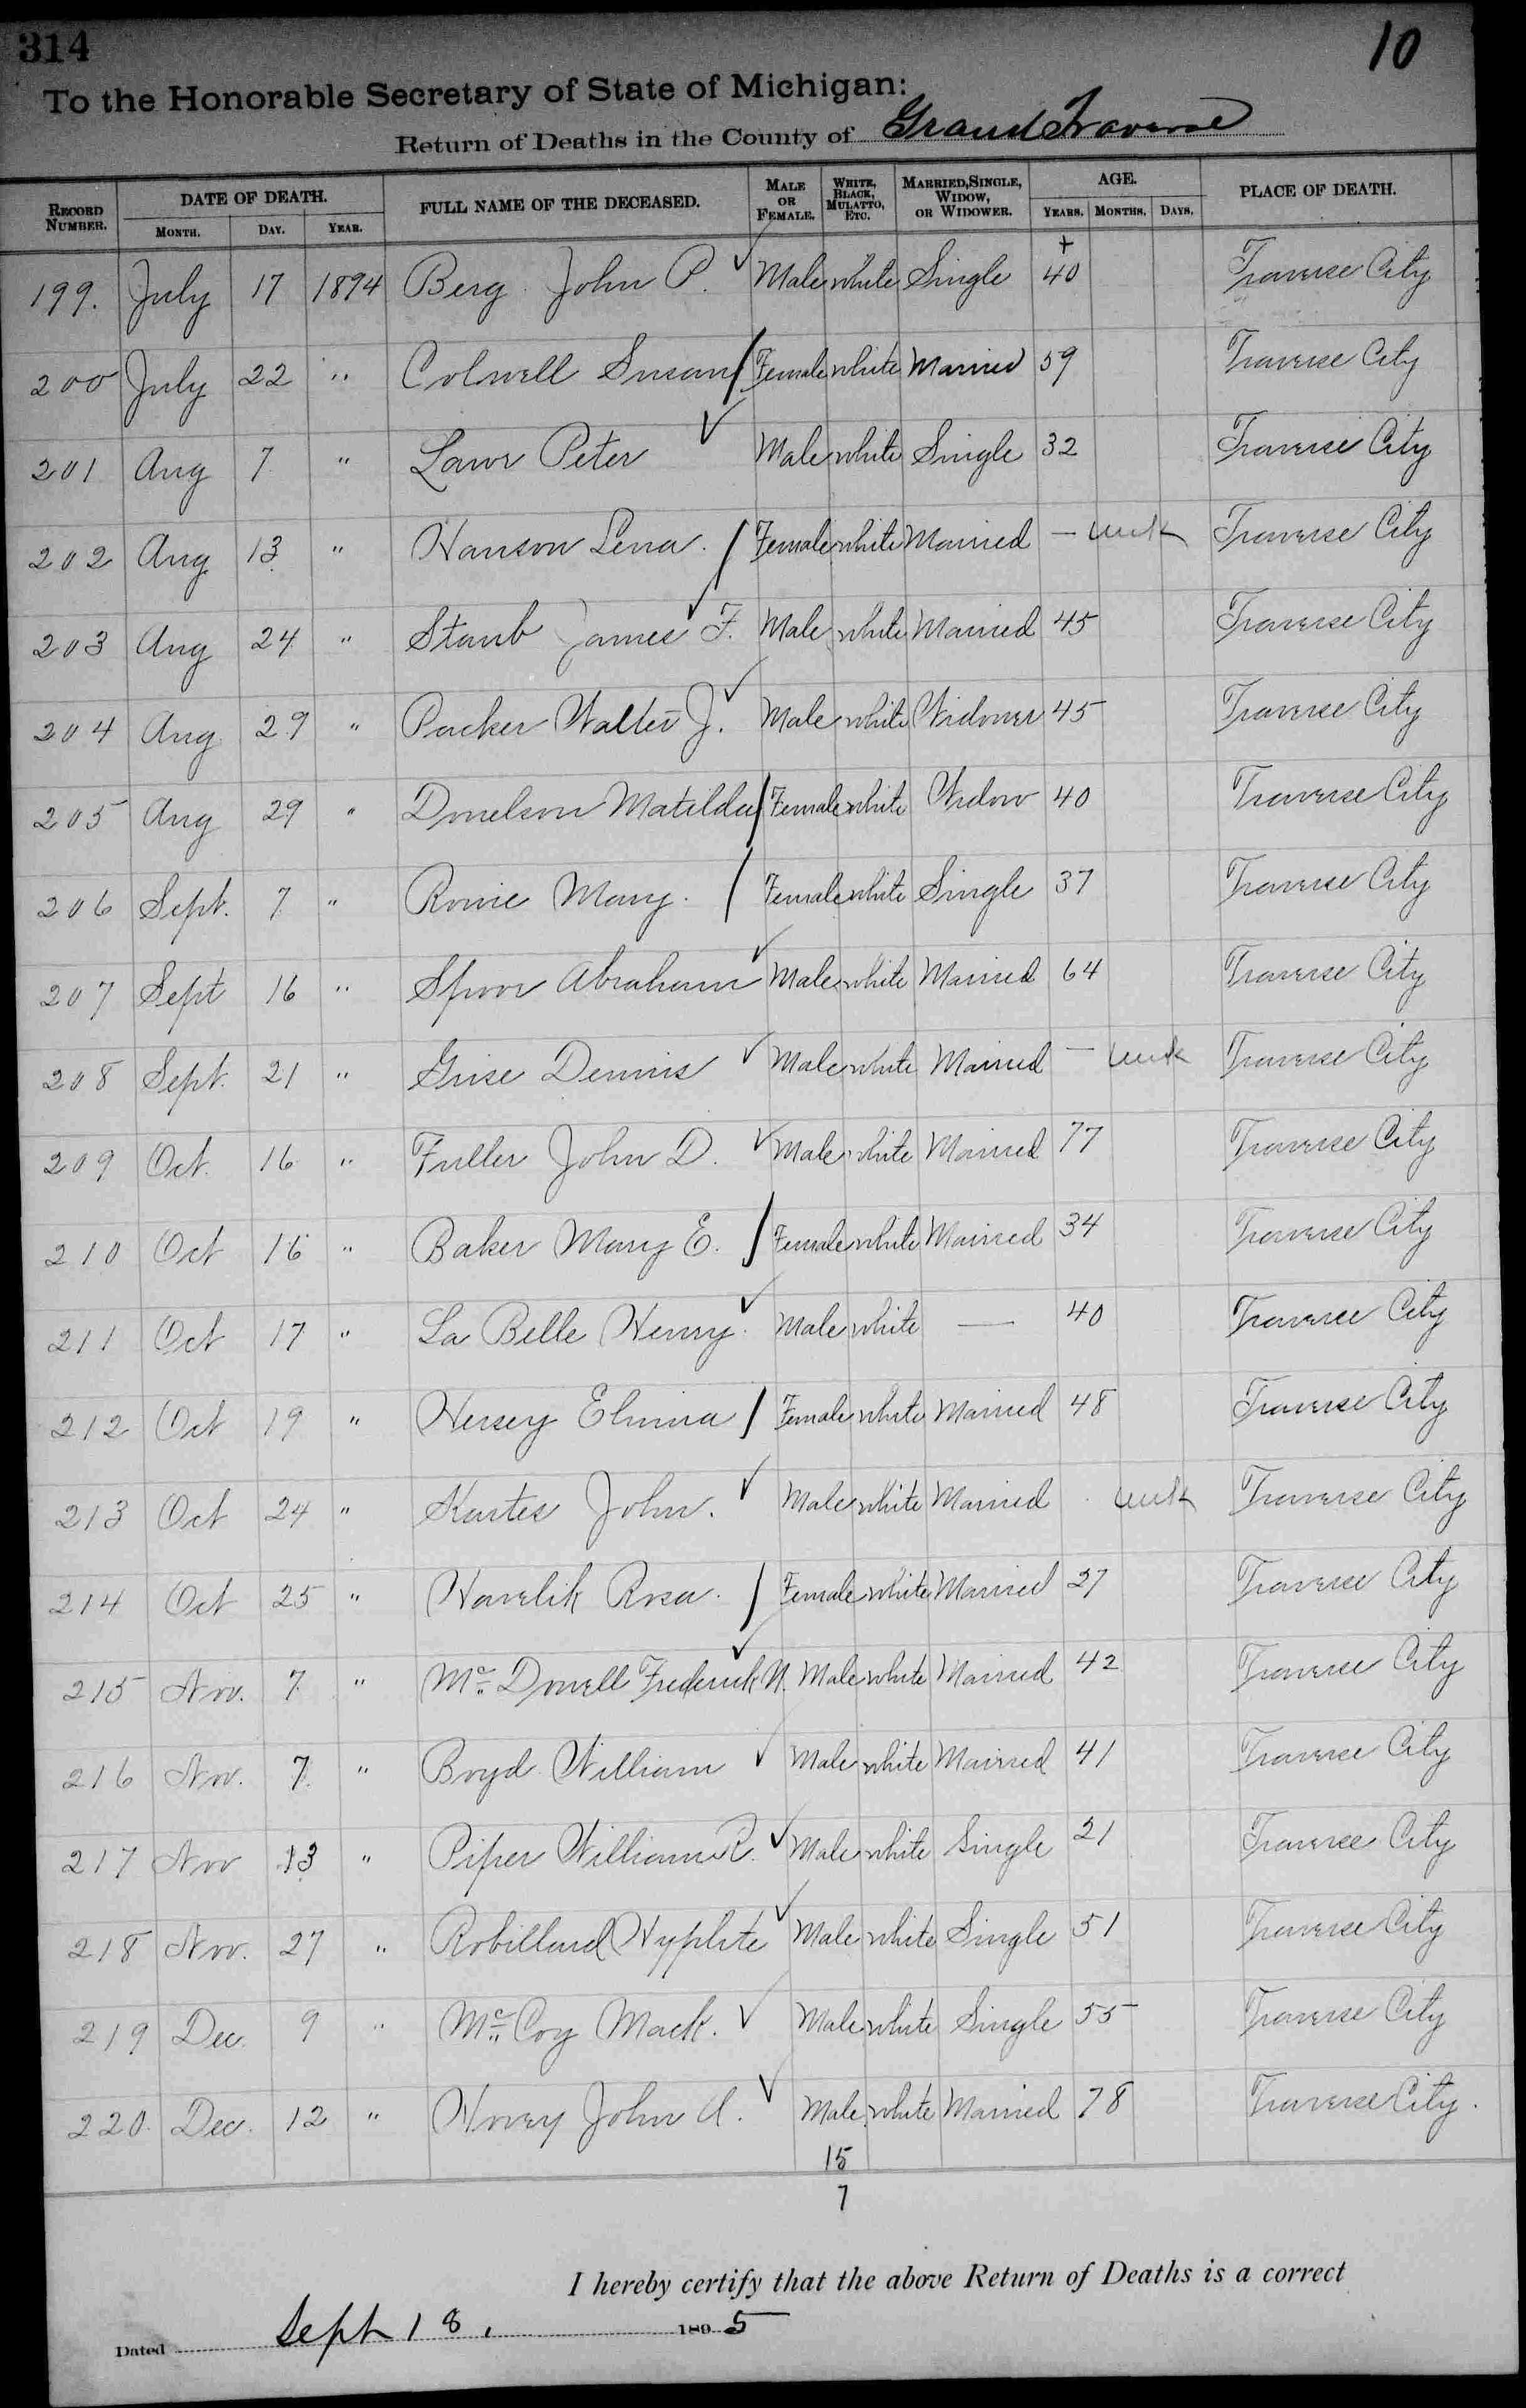 314
10
To the Honorable Secretary of State of Michigan:
Return of Deaths in the County of Grand Traverse
RECORD NUMBER. DATE OF DEATH. MONTH. DAY. YEAR. FULL NAME OF THE DECEASED. MALE OR FEMALE. WHITE, BLACK, MULATTO, ETC. MARRIED, SINGLE, WIDOW, OR WIDOWER. AGE. YEARS. MONTHS. DAYS. PLACE OF DEATH.
199. July 17 1894 Berg John P. Male white Single 40 Traverse City
200 July 22 " Colwell Susan Female white Married 59 Traverse City
201 Aug 7 " Peter Male white Single 32 Traverse City
202 Aug 13 " Hanson Lena. Female white Married — unk Traverse City
203 Aug 24 " Staub James F. Male white Married 45 Traverse City
204 Aug 29 " Packer Walter J. Male white Widower 45 Traverse City
205 Aug 29 " Donelson Matilda Female white Widow 40 Traverse City
206 Sept. 7 " Mary. Female white Single 37 Traverse City
207 Sept 16 " Spoor Abraham Male white Married 64 Traverse City
208 Sept. 21 " Grise Dennis Male white Married — unk Traverse City
209 Oct. 16 " Fuller John D. Male white Married 77 Traverse City
210 Oct 16 " Baker Mary E. Female white Married 34 Traverse City
211 Oct 17 " La Belle Henry. Male white — 40 Traverse City
212 Oct 19 " Hersey Elmina Female white Married 48 Traverse City
213 Oct 24 " Kartes John. Male white Married unk Traverse City
214 Oct 25 " Havelik Rosa. Female white Married 27 Traverse City
215 Nov. 7 " Mc Dowell Frederick N. Male white Married 42 Traverse City
216 Nov. 7 " Boyd William Male white Married 41 Traverse City
217 Nov 13 " Piper William R. Male white Single 21 Traverse City
218 Nov. 27 " Robillard Hyplite Male white Single 51 Traverse City
219 Dec. 9 " Mc Coy Mack. Male white Single 55 Traverse City
220. Dec. 12 " Hovey John A. Male white Married 78 Traverse City.
15
7
I hereby certify that the above Return of Deaths is a correct
Dated Sept 18, 1895